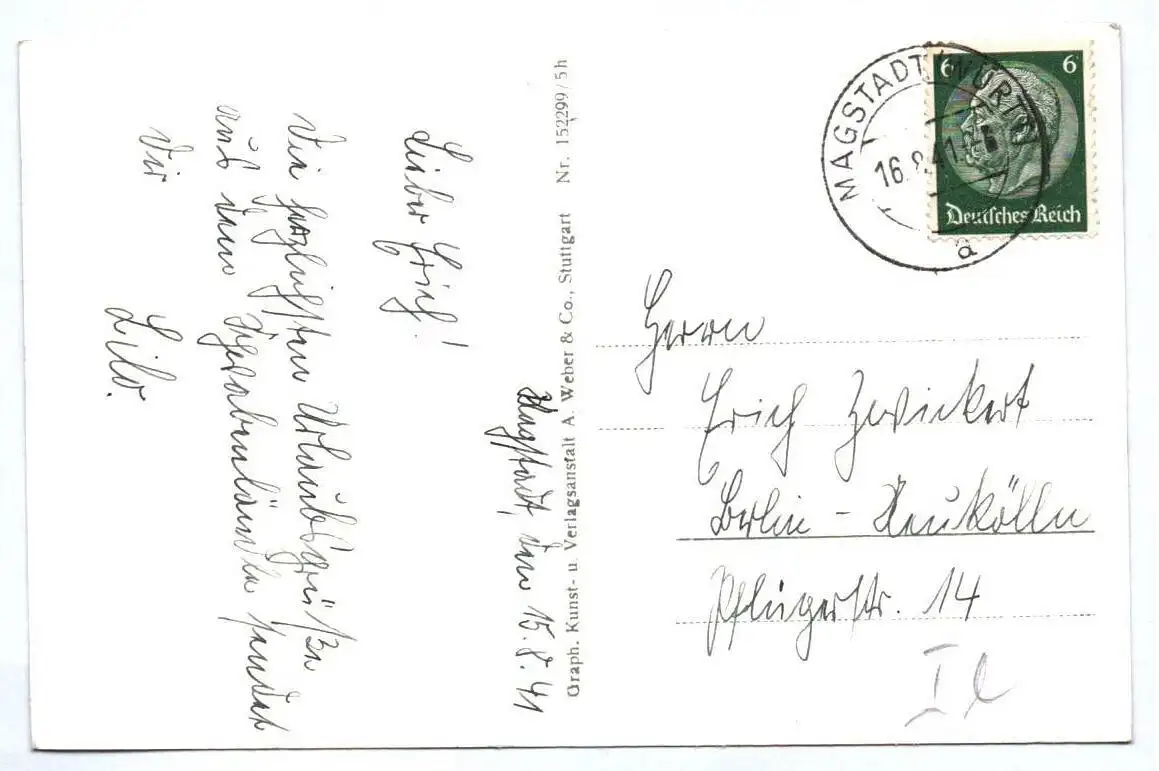 Magstadt, den 15.8.41
Lieber Erich!
Die herzlichsten Urlaubsgrüße
aus dem Schwabenländle sendet
Dir
Lilo.
Graph. Kunst- u. Verlagsanstalt A. Weber & Co., Stuttgart Nr. 152299/5h
MAGSTADT (WÜRTT)
16.8.41
a
6 6
Deutsches Reich
Herrn
Erich Zwickert
Berlin - Neukölln
Pflügerstr. 14